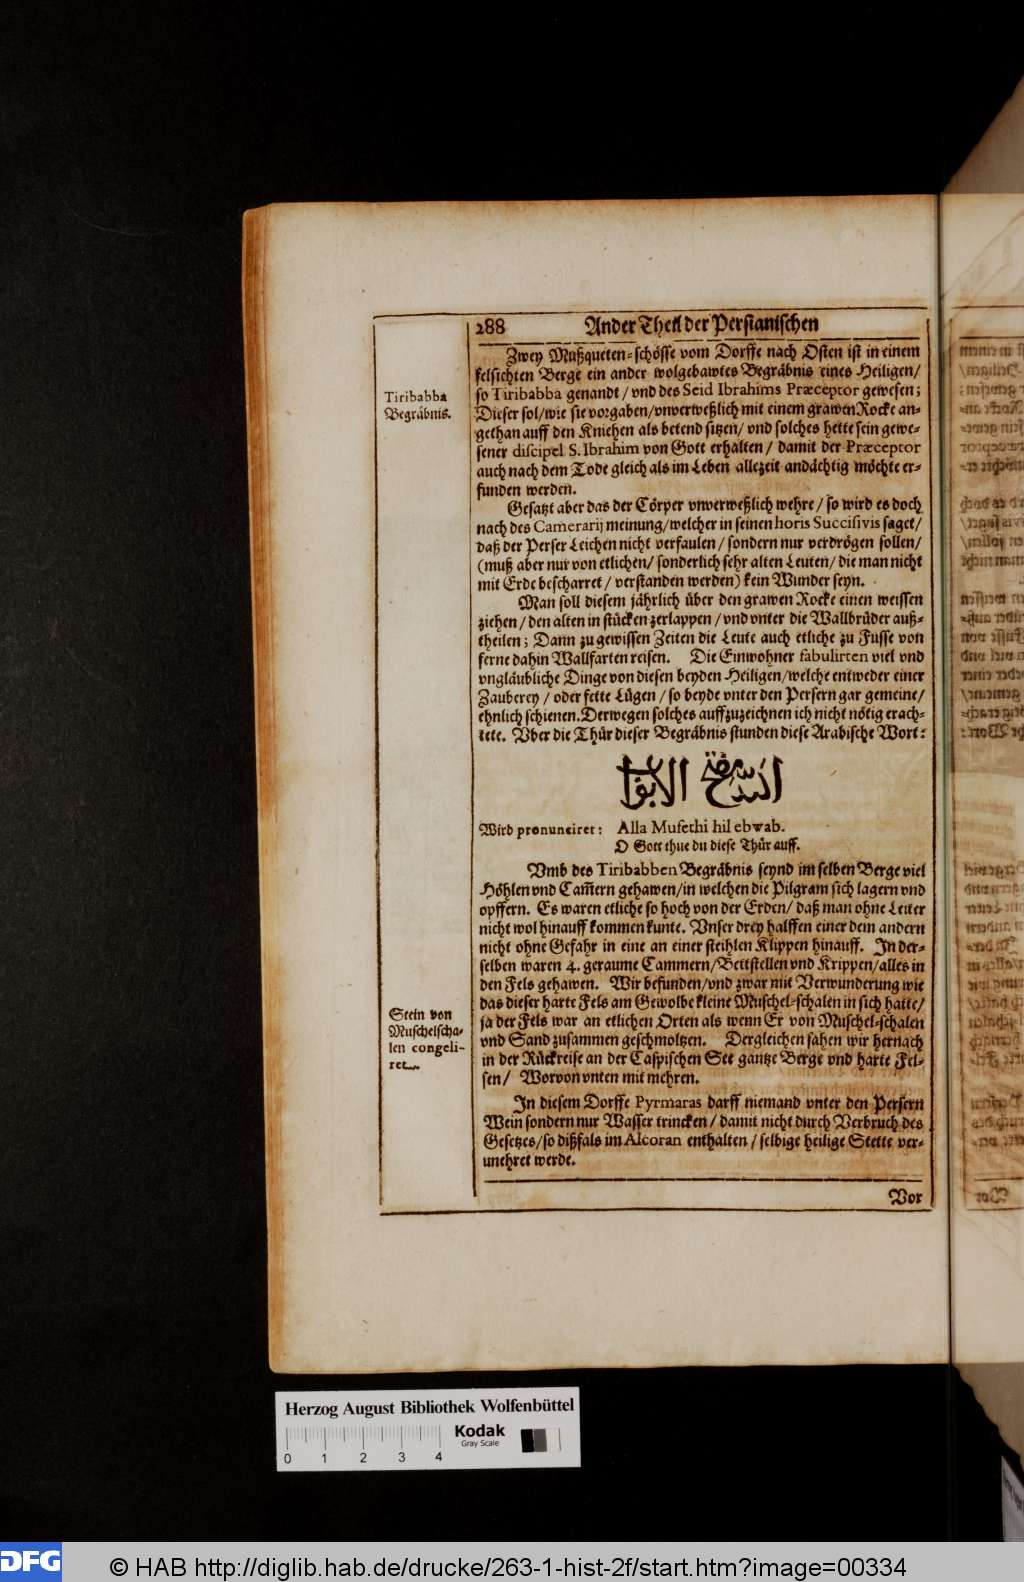 288 Ander Theil der Persianischen
Zwey Mußqueten-schösse vom Dorffe nach Osten ist in einem
felsichten Berge ein ander wolgebawtes Begräbnis eines Heiligen/
so Tiribabba genandt / vnd des Seid Ibrahims Præceptor gewesen;
Tiribabba
Begräbnis.
Dieser sol/wie sie vorgaben/vnverweßlich mit einem grawen Rocke an-
gethan auff den Kniehen als betend sitzen/ vnd solches hette sein gewe-
sener discipel S. Ibrahim von Gott erhalten / damit der Præceptor
auch nach dem Tode gleich als im Leben allezeit andächtig möchte er-
funden werden.
Gesatzt aber das der Cörper vnverweßlich wehre / so wird es doch
nach des Camerarij meinung/welcher in seinen horis Succisivis saget/
daß der Perser Leichen nicht verfaulen / sondern nur verdrögen sollen/
(muß aber nur von etlichen/ sonderlich sehr alten Leuten/ die man nicht
mit Erde bescharret / verstanden werden) kein Wunder seyn.
Man soll diesem jährlich über den grawen Rocke einen weissen
ziehen / den alten in stücken zerlappen / vnd vnter die Wallbrüder auß-
theilen; Dann zu gewissen Zeiten die Leute auch etliche zu Fusse von
ferne dahin Wallfarten reisen. Die Einwohner fabulirten viel vnd
vngläubliche Dinge von diesen beyden Heiligen/welche entweder einer
Zauberey / oder fette Lügen / so beyde vnter den Persern gar gemeine/
ehnlich schienen. Derwegen solches auffzuzeichnen ich nicht nötig erach-
tete. Vber die Thür dieser Begräbnis stunden diese Arabische Wort:
Wird pronunciret: Alla Mufethi hil ebwab.
O Gott thue du diese Thür auff.
Vmb des Tiribabben Begräbnis seynd im selben Berge viel
Höhlen vnd Cam̃ern gehawen/in welchen die Pilgram sich lagern vnd
opffern. Es waren etliche so hoch von der Erden/ daß man ohne Leiter
nicht wol hinauff kommen kunte. Vnser drey halffen einer dem andern
nicht ohne Gefahr in eine an einer steihlen Klippen hinauff. In der-
selben waren 4. geraume Cammern/Bettstellen vnd Krippen/alles in
den Fels gehawen. Wir befunden/vnd zwar mit Verwunderung wie
das dieser harte Fels am Gewolbe kleine Muschel-schalen in sich hatte/
ja der Fels war an etlichen Orten als wenn Er von Muschel-schalen
vnd Sand zusammen geschmoltzen. Dergleichen sahen wir hernach
in der Rückreise an der Caspischen See gantze Berge vnd harte Fel-
sen/ Worvon vnten mit mehren.
Stein von
Muschelscha-
len congeli-
ret.
In diesem Dorffe Pyrmaras darff niemand vnter den Persern
Wein sondern nur Wasser trincken / damit nicht durch Verbruch des
Gesetzes/so dißfals im Alcoran enthalten / selbige heilige Stette ver-
unehret werde.
Vor
Herzog August Bibliothek Wolfenbüttel
Kodak
Gray Scale
0 1 2 3 4
DFG
© HAB http://diglib.hab.de/drucke/263-1-hist-2f/start.htm?image=00334